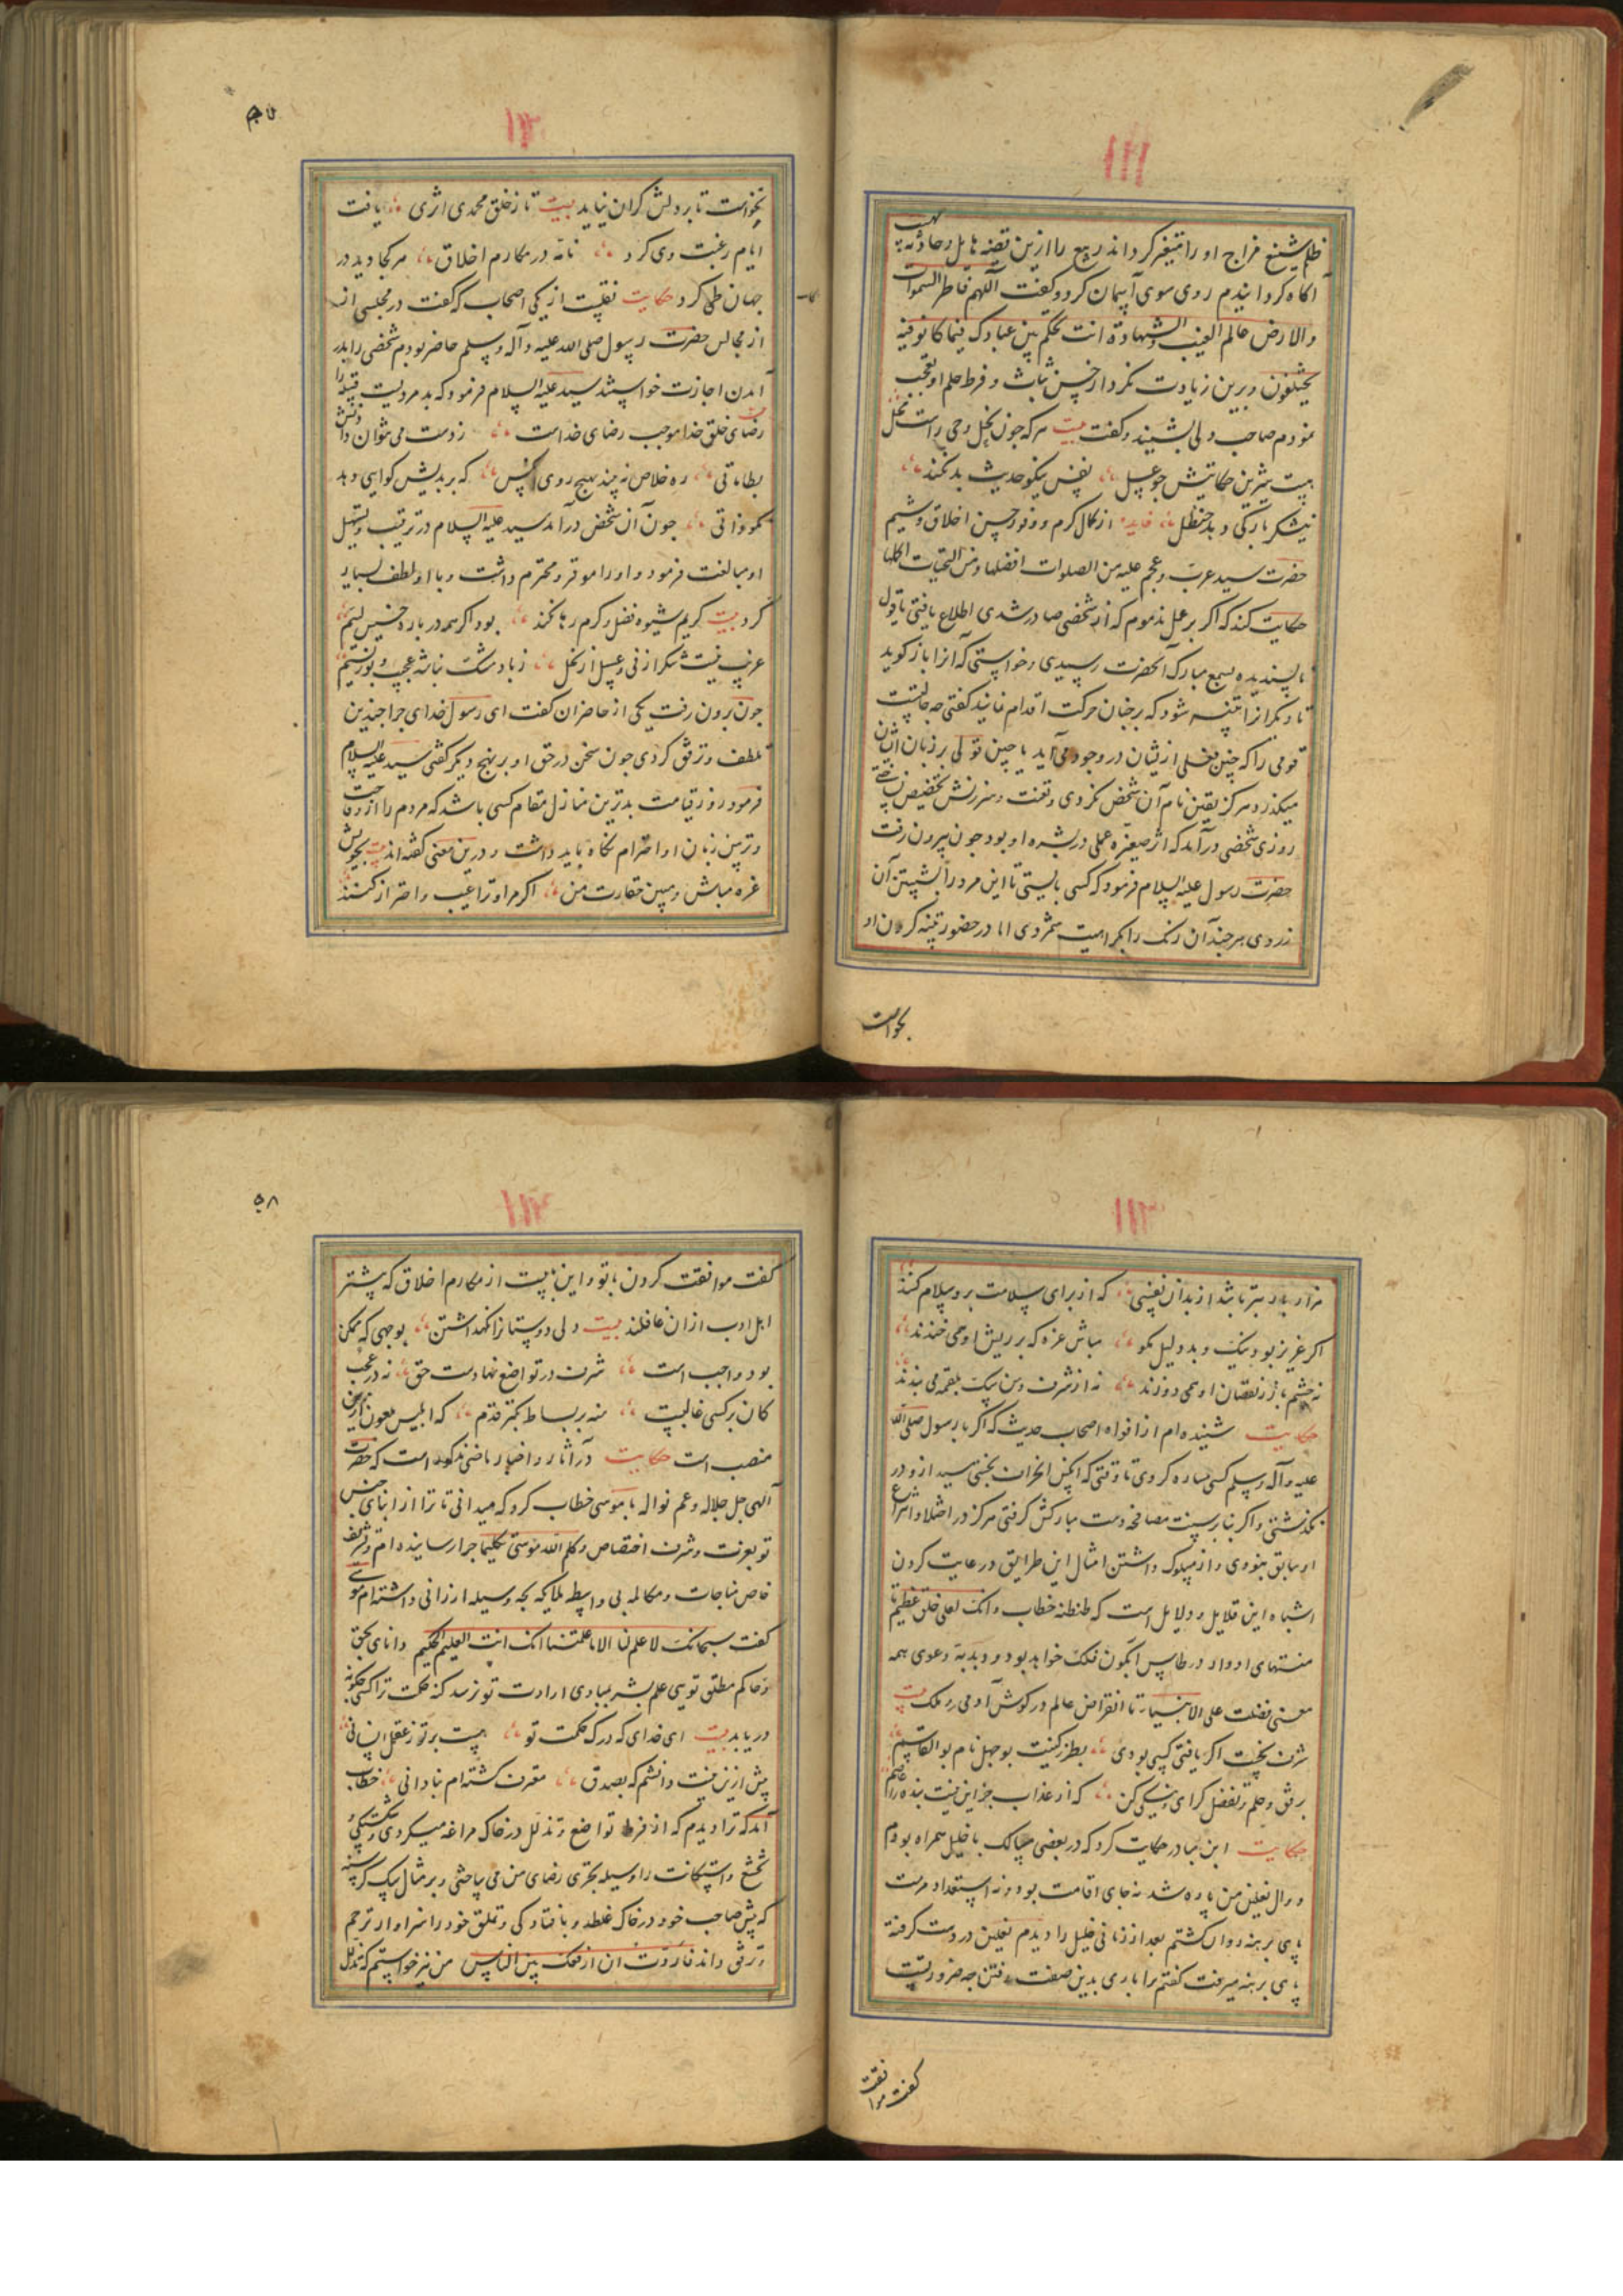 ١١١
ظلم شنیع مزاج او را متغیر کرداند ربیع را ازین قضیه هایل و حادثه
آکاه کردانیدم روی سوی آسمان کرد و کفت اللهم فاطر السموات
والارض عالم الغیب والشهادة انت تحکم بین عبادک فیما کانوا فیه
یختلفون و برین زیادت نکرد از حسن ثبات و فرط حلم او تعجب
نمودم صاحب دلی بشنید و کفت بیت هرکه چون نحل وحی راست
بیت شیرین حکایتش چو عسل نفس نیکو حدیث بد نکند
نیشکر بار کی دهد حنظل فایده از کمال کرم و وفور حسن اخلاق و شیم
حضرت سید عرب و عجم علیه من الصلوات افضلها و من التحیات اکملها
حکایت کنند که اکر بر عمل مذموم که از شخصی صادر شدی اطلاع یافتی یا قول
ناپسندیده بسمع مبارک آنحضرت رسیدی و خواستی که آنرا باز کوید
تا دیکرانرا تنبیه شود که بر چنان حرکت اقدام ننمایند کفتی چه حالتست
قومی را که چنین فعلی از یشان در وجود می آید یا چنین قولی بر زبان اشان
میکذرد و هرکز بتعیین نام آن شخص نکردی و تعنت و سرزنش تخصیص
روزی شخصی درآمد که اثر صفره علی در بشره او بود چون بیرون رفت
حضرت رسول علیه السلام فرمود که کسی بایستی تا این مرد را بشستن آن
زردی هرچند آن رنک را بکراهیت شمردی اما در حضور تنبیه کردن او
بخواست
۵۷
١١٢
بخواست تا بر دلش کران نیاید بیت تا ز خلق محمدی اثری یافت
ایام رغبت وی کرد نامه در مکارم اخلاق هرکجا دید در
جهان طی کرد حکایت نقلست از یکی اصحاب که کفت در مجلسی از
از مجالس حضرت رسول صلی الله علیه وآله وسلم حاضر بودم شخصی را بدر
آمدن اجازت خواستند سید علیه السلام فرمود که بد مردیست قبیله را
رضای خلق خدا موجب رضای خداست ز دست می نتوان داد
بطاماتی ره خلاص نه بیند بهیچ روی آنکس که بر بدیش کواهی دهد
نکو ذاتی چون آن شخص درآمد سید علیه السلام در ترتیب و تسهیل
او مبالغت فرمود و او را موقر و محترم داشت و با او لطف بسیار
کرد بیت کریم شیوه فضل و کرم رها نکند بود اکر همه در باره خسیس لئیم
غریب نیست شکر از نی و عسل از نحل ز باد مشک نباشد عجیب و بوز نسیم
چون برون رفت یکی از حاضران کفت ای رسول خدای چرا چندین
تلطف و ترفق کردی چون سخن در حق او بر نهج دیکر کفتی سید علیه السلام
فرمود روز قیامت بدترین منازل مقام کسی باشد که مردم را از وقاحت
و ترس زبان او احترام نکاه باید داشت و درین معنی کفته اند بیت بخویش
غره مباش و مبین حقارت من اکرم او ترا عیب و احتراز کنند
١١٣
هزار بار بتر باشد از بدان نفسی که از برای سلامت برو سلام کنند
اکر عزیز بود ونیک و بد دلیل مکو مباش غره که بر ریش او همی خندند
نه چشم باز ز نقصان او همی دوزند نه از شرف دهن سک بلقمه می بندند
حکایت شنیده ام از افواه اصحاب حدیث که اکر با رسول صلی الله
علیه وآله وسلم کسی مساره کردی تا وقتی که آنکس از آن سخن نپرسید ازو در
نکذشتی و اکر بنا بر سنت مصافحه دست مبارکش کرفتی هرکز در افشلا و انتزاع
او سابق نبودی و از مسلوک داشتن امثال این طرایق و رعایت کردن
اشباه این قلایل و دلایل است که طنطنه خطاب وانک لعلی خلق عظیم تا
منتهای ادوار در طاس آبکون فلک خواهد بود و دبدبه دعوی همه
معنی فضلت علی الانبیا تا انقراض عالم در کوش آدمی و ملک بیت
شرف بخت اکر یافتی کسی بودی بطرز کنیت بوجهل نام بوالقاسم
برفق و حلم و تفضل کرای و نیکی کن که از عذاب جز این نیست بنده را عاصم
حکایت ابن مبادر حکایت کرد که در بعضی مسالک با خلیل همراه بودم
دوال نعلین من پاره شد نه جای اقامت بود و نه استعداد مرمت
پای برهنه روان کشتم بعد از زمانی خلیل را دیدم نعلین در دست کرفته
پای برهنه میرفت کفتم ترا باری بدین صفت رفتن چه ضرورتست
کفت موافقت
۵۸
١١٤
کفت موافقت کردن با تو و این بابیست از مکارم اخلاق که بیشتر
اهل ادب ازان غافلند بیت دلی دوستانرا نکهداشتن بوجهی که ممکن
بود واجب است شرف در تواضع نهادست حق نه در عجب
کان بر کسی غالبست منه بر بساط تکبر قدم که ابلیس ملعون ازین
منصب است حکایت در آثار و اخبار ماضی مذکور است که حضرت
الهی جل جلاله و عم نواله با موسی خطاب کرد که میدانی تا ترا از ابنای جنس
تو بعزت و شرف اختصاص و کلم الله موسی تکلیما چرا رسانیده ام و تشریف
خاص مناجات و مکالمه بی واسطه ملایکه بچه وسیله ارزانی داشته ام موسی
کفت سبحانک لا علم لنا الا ما علمتنا انک انت العلیم الحکیم دانای بحق
و حاکم مطلق تویی علم بشر بمبادی ارادت تو نرسد کنه حکمت ترا کسی چکونه
دریابد بیت ای خدای که درک حکمت تو هست برتر ز عقل انسانی
پیش ازین نیست دانشم که بصدق معترف کشته ام بنادانی خطاب
آمد که ترا دیدم که از فرط تواضع و تذلل در خاک مراغه میکردی و تمسکن و
تخشع و استکانت را وسیله تحری رضای من می ساختی و بر مثال سک کرسنه
که پیش صاحب خود در خاک غلطد و بافتادکی و تملق خود را سزاوار ترحم
و ترفق داند فاردت ان ارفعک بین الناس من نیز خواستم که تذلل